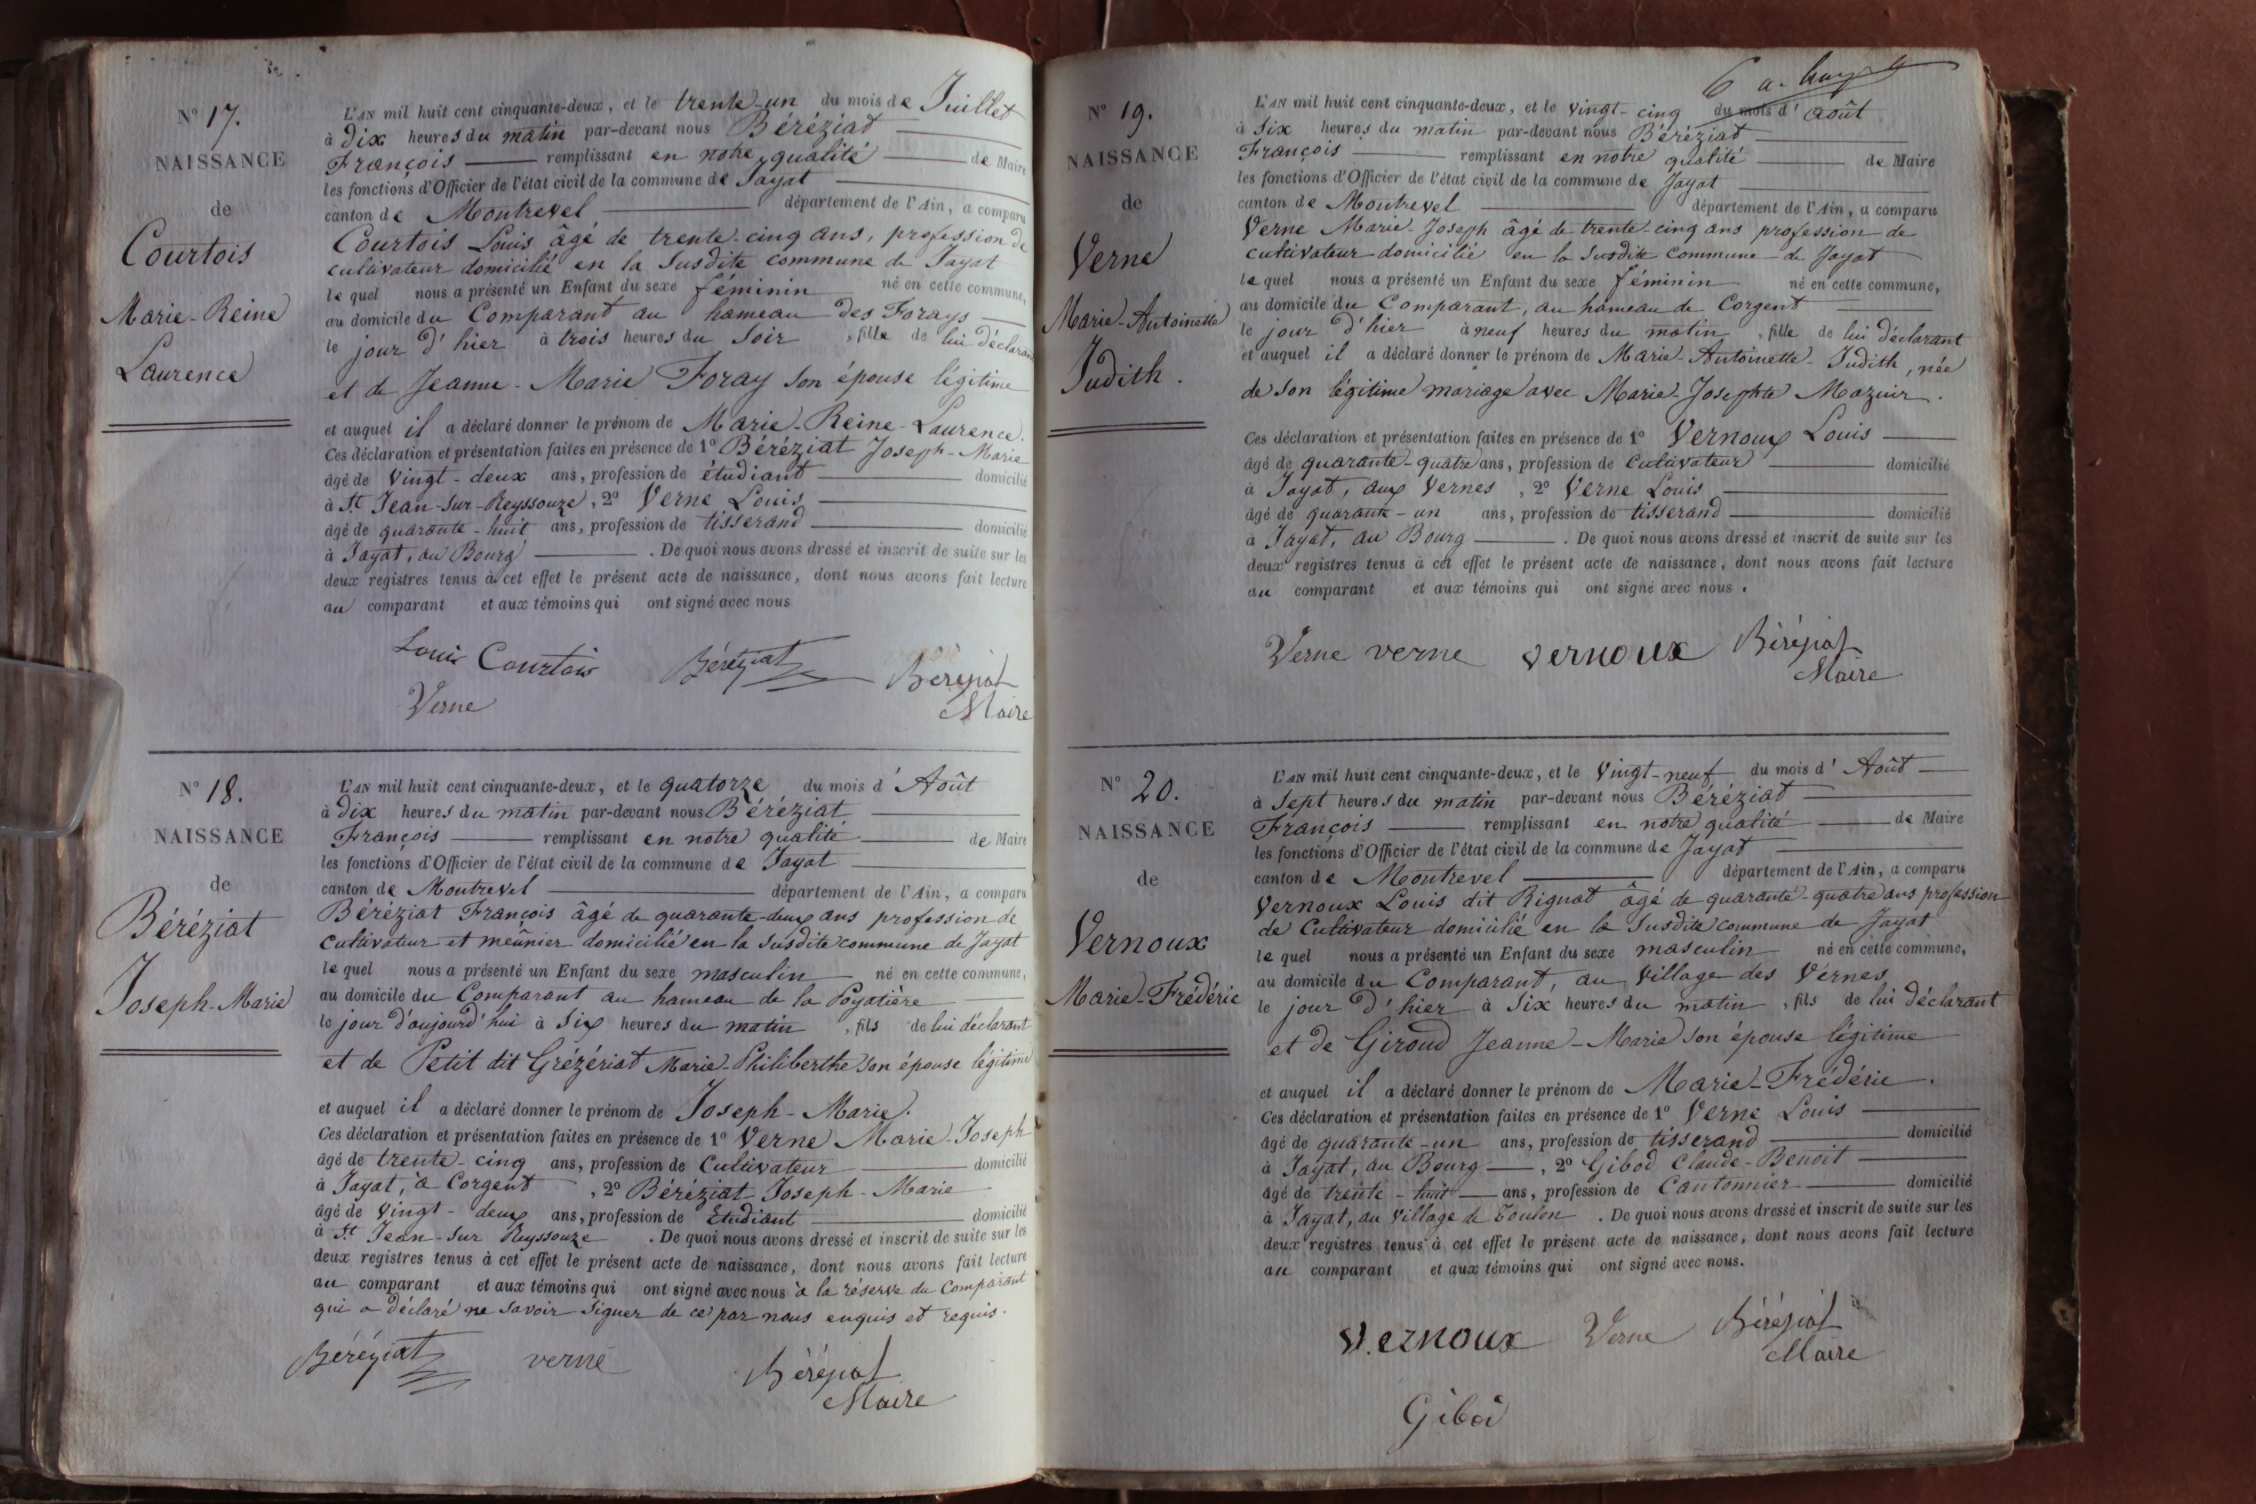 N° 17.
NAISSANCE
de
Courtois
Marie-Reine
Laurence
L'AN mil huit cent cinquante-deux, et le trente-un du mois de Juillet
à dix heures du matin par-devant nous Béréziat
François remplissant en notre qualité de Maire
les fonctions d'Officier de l'état civil de la commune de Jayat
canton de Montrevel département de l'Ain, a comparu
Courtois Louis âgé de trente-cinq ans, profession de
cultivateur domicilié en la susdite commune de Jayat
lequel nous a présenté un Enfant du sexe féminin né en cette commune,
au domicile du Comparant au hameau des Forays
le jour d'hier à trois heures du soir, fille de lui déclarant
et de Jeanne-Marie Foray son épouse légitime
et auquel il a déclaré donner le prénom de Marie-Reine-Laurence.
Ces déclaration et présentation faites en présence de 1° Béréziat Joseph-Marie
âgé de vingt-deux ans, profession de étudiant domicilié
à St Jean-sur-Reyssouze, 2° Verne Louis
âgé de quarante-huit ans, profession de tisserand domicilié
à Jayat, au Bourg. De quoi nous avons dressé et inscrit de suite sur les
deux registres tenus à cet effet le présent acte de naissance, dont nous avons fait lecture
au comparant et aux témoins qui ont signé avec nous
Louis Courtois Béréziat Béréziat
Verne Maire
N° 18.
NAISSANCE
de
Béréziat
Joseph-Marie
L'AN mil huit cent cinquante-deux, et le quatorze du mois d'Août
à dix heures du matin par-devant nous Béréziat
François remplissant en notre qualité de Maire
les fonctions d'Officier de l'état civil de la commune de Jayat
canton de Montrevel département de l'Ain, a comparu
Béréziat François âgé de quarante-deux ans profession de
cultivateur et meûnier domicilié en la susdite commune de Jayat
lequel nous a présenté un Enfant du sexe masculin né en cette commune,
au domicile du Comparant au hameau de la Poyatière
le jour d'aujourd'hui à six heures du matin, fils de lui déclarant
et de Petit dit Grézériat Marie-Philiberthe son épouse légitime
et auquel il a déclaré donner le prénom de Joseph-Marie.
Ces déclaration et présentation faites en présence de 1° Verne Marie-Joseph
âgé de trente-cinq ans, profession de Cultivateur domicilié
à Jayat, à Corgent, 2° Béréziat Joseph-Marie
âgé de vingt-deux ans, profession de Etudiant domicilié
à St Jean-sur Reyssouze. De quoi nous avons dressé et inscrit de suite sur les
deux registres tenus à cet effet le présent acte de naissance, dont nous avons fait lecture
au comparant et aux témoins qui ont signé avec nous à la réserve du Comparant
qui a déclaré ne savoir signer de ce par nous enquis et requis.
Béréziat verne Béréziat
Maire
N° 19.
NAISSANCE
de
Verne
Marie-Antoinette
Judith.
6 a.
L'AN mil huit cent cinquante-deux, et le vingt-cinq du mois d'août
à six heures du matin par-devant nous Béréziat
François remplissant en notre qualité de Maire
les fonctions d'Officier de l'état civil de la commune de Jayat
canton de Montrevel département de l'Ain, a comparu
Verne Marie-Joseph âgé de trente-cinq ans profession de
cultivateur domicilié en la susdite Commune de Jayat
lequel nous a présenté un Enfant du sexe féminin né en cette commune,
au domicile du Comparant, au hameau de Corgent
le jour d'hier à neuf heures du matin, fille de lui déclarant
et auquel il a déclaré donner le prénom de Marie-Antoinette-Judith, née
de son légitime mariage avec Marie-Josephte Mazuir.
Ces déclaration et présentation faites en présence de 1° Vernoux Louis
âgé de quarante-quatre ans, profession de Cultivateur domicilié
à Jayat, aux Vernes, 2° Verne Louis
âgé de quarante-un ans, profession de tisserand domicilié
à Jayat, au Bourg. De quoi nous avons dressé et inscrit de suite sur les
deux registres tenus à cet effet le présent acte de naissance, dont nous avons fait lecture
au comparant et aux témoins qui ont signé avec nous.
Verne verne vernoux Béréziat
Maire
N° 20.
NAISSANCE
de
Vernoux
Marie-Frédéric
L'AN mil huit cent cinquante-deux, et le vingt-neuf du mois d'Août
à sept heures du matin par-devant nous Béréziat
François remplissant en notre qualité de Maire
les fonctions d'Officier de l'état civil de la commune de Jayat
canton de Montrevel département de l'Ain, a comparu
Vernoux Louis dit Rignat âgé de quarante-quatre ans profession
de Cultivateur domicilié en la susdite commune de Jayat
lequel nous a présenté un Enfant du sexe masculin né en cette commune,
au domicile du Comparant, au village des Vernes
le jour d'hier à six heures du matin, fils de lui déclarant
et de Giroud Jeanne-Marie son épouse légitime
et auquel il a déclaré donner le prénom de Marie-Frédéric.
Ces déclaration et présentation faites en présence de 1° Verne Louis
âgé de quarante-un ans, profession de tisserand domicilié
à Jayat, au Bourg, 2° Gibod Claude-Benoit
âgé de trente-huit ans, profession de Cantonnier domicilié
à Jayat, au village de Toulon. De quoi nous avons dressé et inscrit de suite sur les
deux registres tenus à cet effet le présent acte de naissance, dont nous avons fait lecture
au comparant et aux témoins qui ont signé avec nous.
Vernoux Verne Béréziat
Maire
Gibod